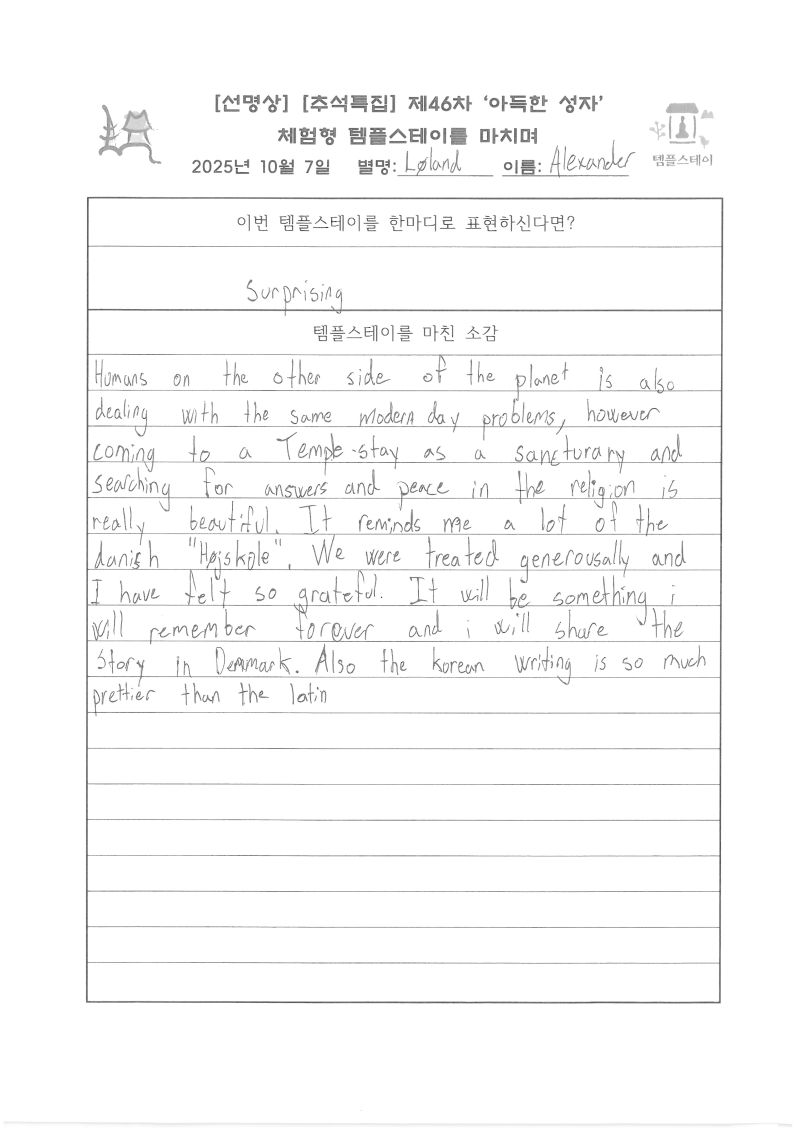 [선명상] [추석특집] 제46차 ‘아득한 성자’
체험형 템플스테이를 마치며
2025년 10월 7일 별명: Løland 이름: Alexander
템플스테이
이번 템플스테이를 한마디로 표현하신다면?
Surprising
템플스테이를 마친 소감
Humans on the other side of the planet is also
dealing with the same modern day problems, however
coming to a Temple-stay as a sancturary and
searching for answers and peace in the religion is
really beautiful. It reminds me a lot of the
danish "Højskole". We were treated generousally and
I have felt so grateful. It will be something i
will remember forever and i will share the
story in Denmark. Also the korean writing is so much
prettier than the latin